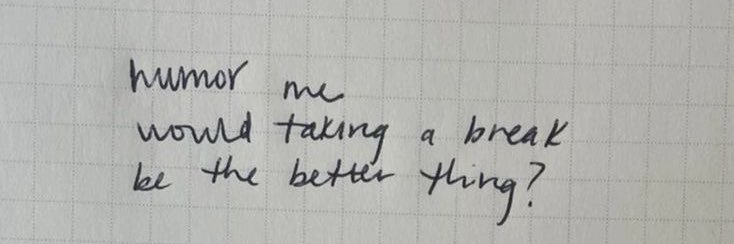 humor me
would taking a break
be the better thing?